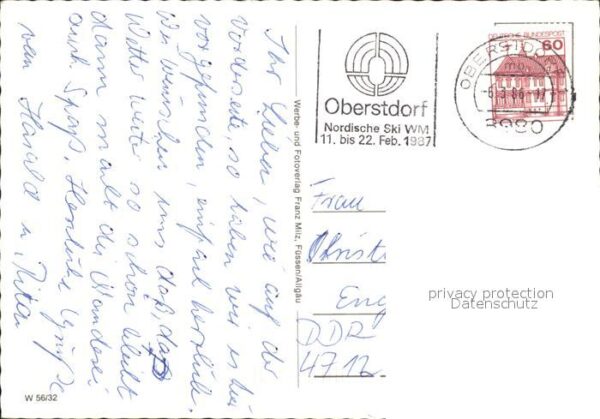 Ihr Lieben, wie auf der
Vorderseite, so haben wir es hier
vorgefunden, einfach herrlich.
Wir wünschen uns daß das
Wetter weiter so schön bleibt
dann macht das Wandern
auch Spaß. Herzliche Grüße
von Harald u. Rita
Werbe- und Fotoverlag Franz Milz, Füssen/Allgäu
W 56/32
Oberstdorf
Nordische Ski WM
11. bis 22. Feb. 1987
DEUTSCHE BUNDESPOST
60
OBERSTDORF
8980
Frau
Christ
Eng
DDR
4712
privacy protection
Datenschutz